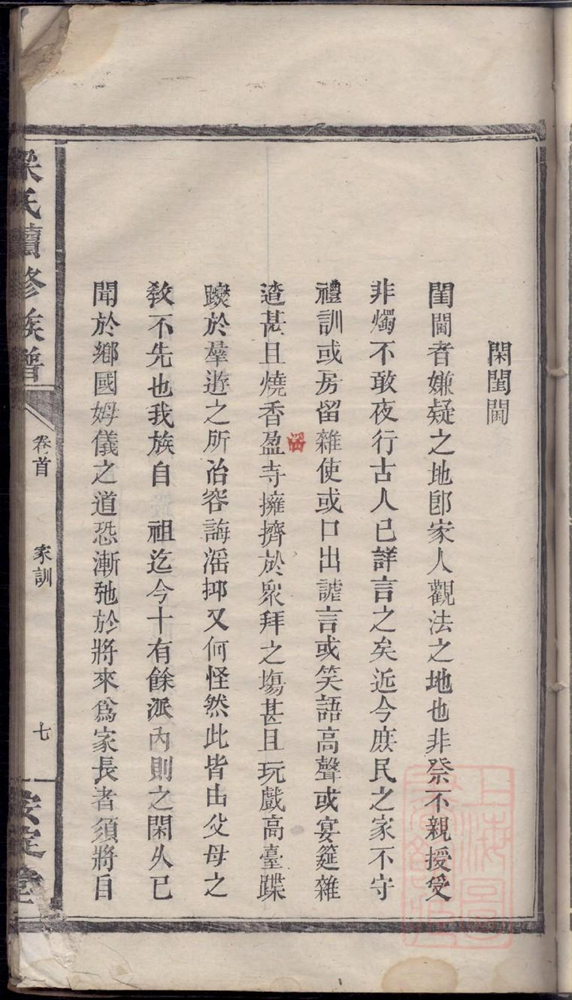 閑閨閫
閨閫者嫌疑之地卽家人觀法之地也非祭不親授受
非燭不敢夜行古人已詳言之矣近今庶民之家不守
禮訓或房留雜使或口出謔言或笑語高聲或宴筵雜
遝甚且燒香盈寺擁擠於衆拜之塲甚且玩戲高臺蹀
躞於羣遊之所冶容誨滛抑又何怪然此皆由父母之
敎不先也我族自 祖迄今十有餘派內則之閑久已
聞於鄉國姆儀之道恐漸弛於將來爲家長者須將自
氏續修族譜
卷首
家訓
七
安定堂